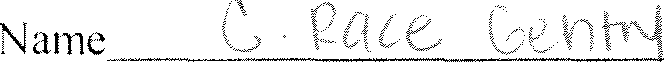 Name C. Race Gentry